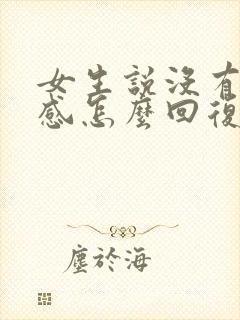 女生說沒有
感怎麼回復
塵於海